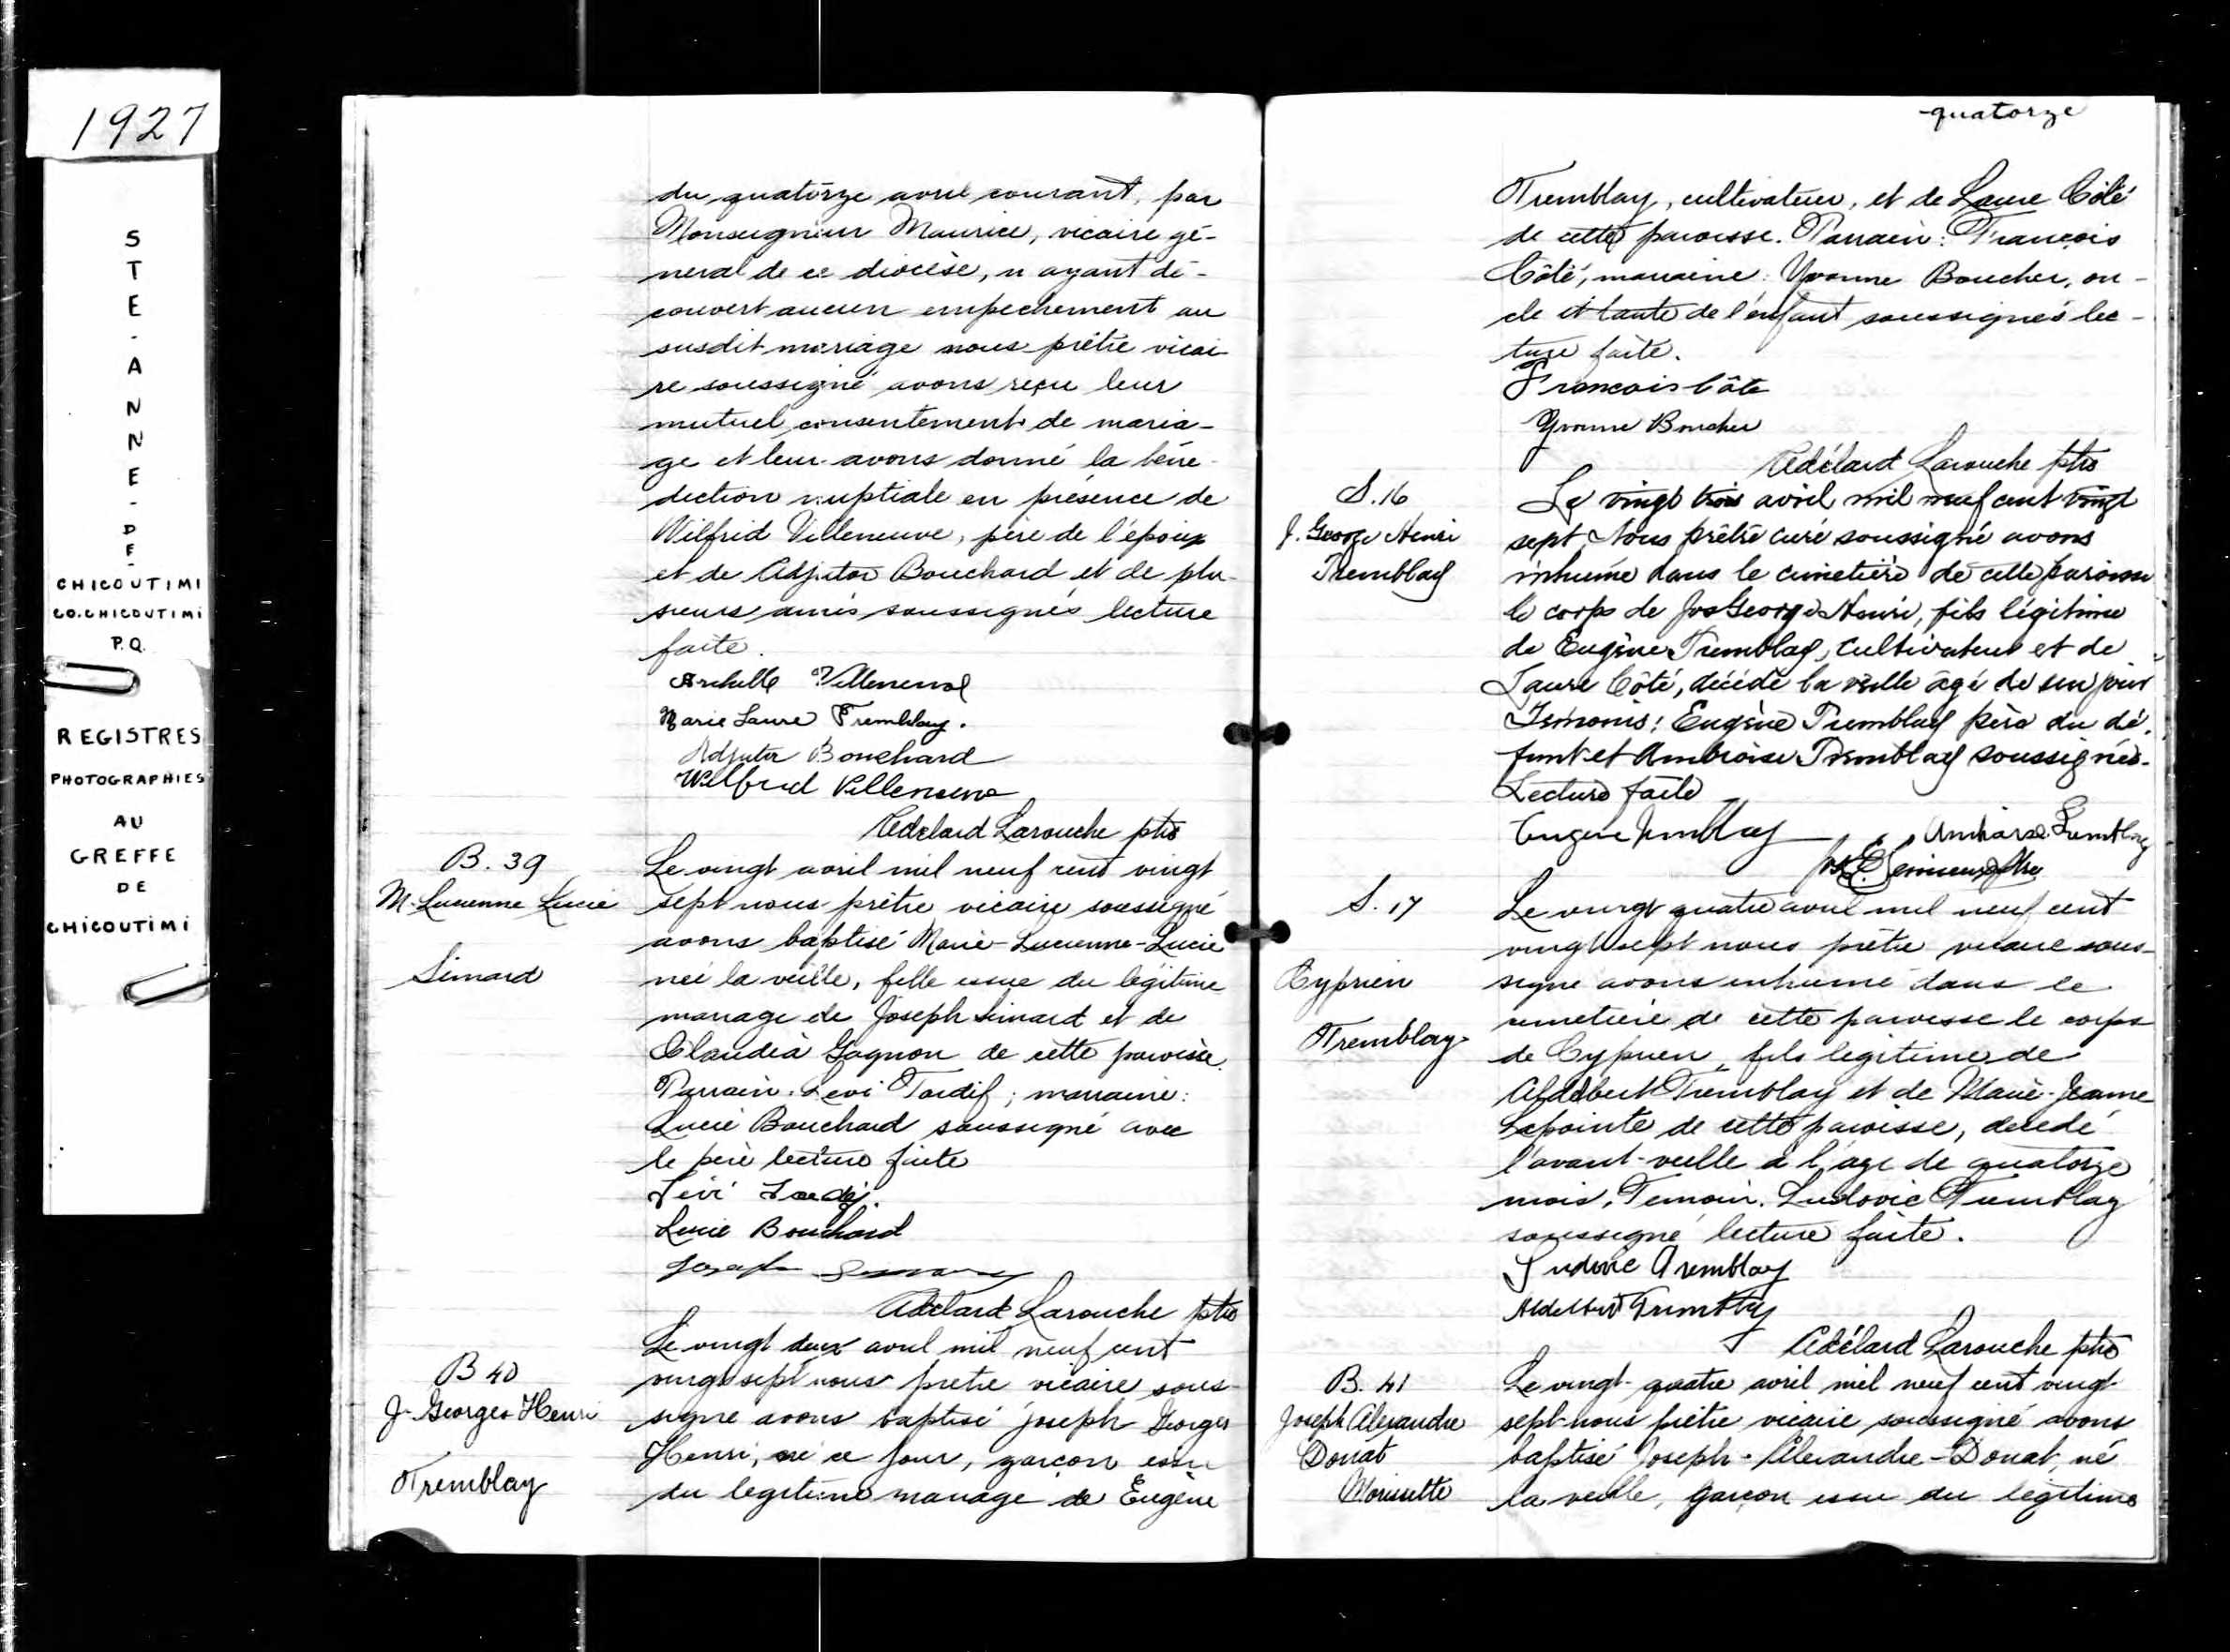 1927
STE-ANNE-DE-
CHICOUTIMI
CO. CHICOUTIMI
P.Q.
REGISTRES
PHOTOGRAPHIES
AU
GREFFE
DE
CHICOUTIMI
du quatorze avril courant, par
Monseigneur Maurice, vicaire gé-
neral de ce diocèse, n'ayant dé-
couvert aucun empechement au
susdit mariage nous prêtre vicai
re soussigné avons reçu leur
mutuel consentement de maria-
ge et leur avons donné la béné-
diction nuptiale en présence de
Wilfrid Villeneuve, père de l'époux
et de Adjutor Bouchard et de plu-
sieurs amis soussignés lecture
faite.
Archille Villeneuve
Marie Laure Tremblay.
Adjutor Bouchard
Wilfrid Villeneuve
Adelard Larouche ptre
B. 39
M. Lucienne Lucie
Simard
Le vingt avril mil neuf cent vingt
sept nous prêtre vicaire soussigné
avons baptisé Marie-Lucienne-Lucie
née la veille, fille issue du légitime
mariage de Joseph Simard et de
Claudia Gagnon de cette paroisse.
Parrain: Levi Tardif; marraine:
Lucie Bouchard soussigné avec
le père lecture faite
Lévi Tardif.
Lucie Bouchard
Joseph Simard
Adélard Larouche ptre
B 40
J. Georges Henri
Tremblay
Le vingt deux avril mil neuf cent
vingt sept nous prêtre vicaire sous-
signé avons baptisé Joseph Georges
Henri, né ce jour, garçon issu
du legitime mariage de Eugène
-quatorze
Tremblay, cultivateur, et de Laure Côté
de cette paroisse. Parrain: François
Côté, marraine: Yvonne Boucher, on-
cle et tante de l'enfant soussignés lec-
ture faite.
Francois Côte
Yvonne Boucher
Adélard Larouche ptre
S. 16
J. George Henri
Tremblay
Le vingt trois avril mil neuf cent vingt
sept Nous prêtre curé soussigné avons
inhumé dans le cimetière de cette paroisse
le corps de Jos George Henri, fils légitime
de Eugène Tremblay, Cultivateur et de
Laure Côté, décédé la veille âgé de un jour
Témoins: Eugène Tremblay père du dé-
funt et Ambroise Tremblay soussignés.
Lecture faite
Eugene Tremblay
Ambroise Tremblay
S. 17
Cyprien
Tremblay
Le vingt quatre avril mil neuf cent
vingt sept nous prêtre vicaire sous-
signé avons inhumé dans le
cimetière de cette paroisse le corps
de Cyprien, fils legitime de
Aldebert Tremblay et de Marie-Jeanne
Lapointe de cette paroisse, decedé
l'avant-veille à l'age de quatorze
mois. Temoin. Ludovic Tremblay
soussigné lecture faite.
Ludovic Tremblay
Aldebert Tremblay
Adélard Larouche ptre
B. 41
Joseph Alexandre
Donat
Morissette
Le vingt-quatre avril mil neuf cent vingt-
sept nous prêtre vicaire soussigné avons
baptisé Joseph-Alexandre-Donat, né
la veille, garçon issu du légitime